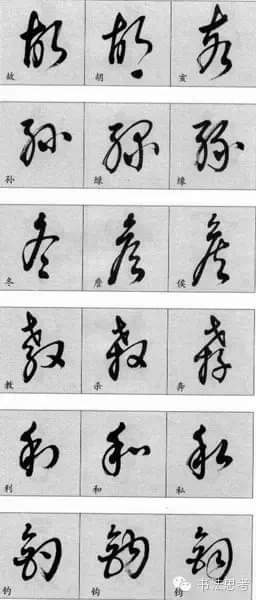 故 胡 亥
孙 绿 缘
冬 詹 侯
教 杀 奔
利 和 私
钓 钩
书法思考